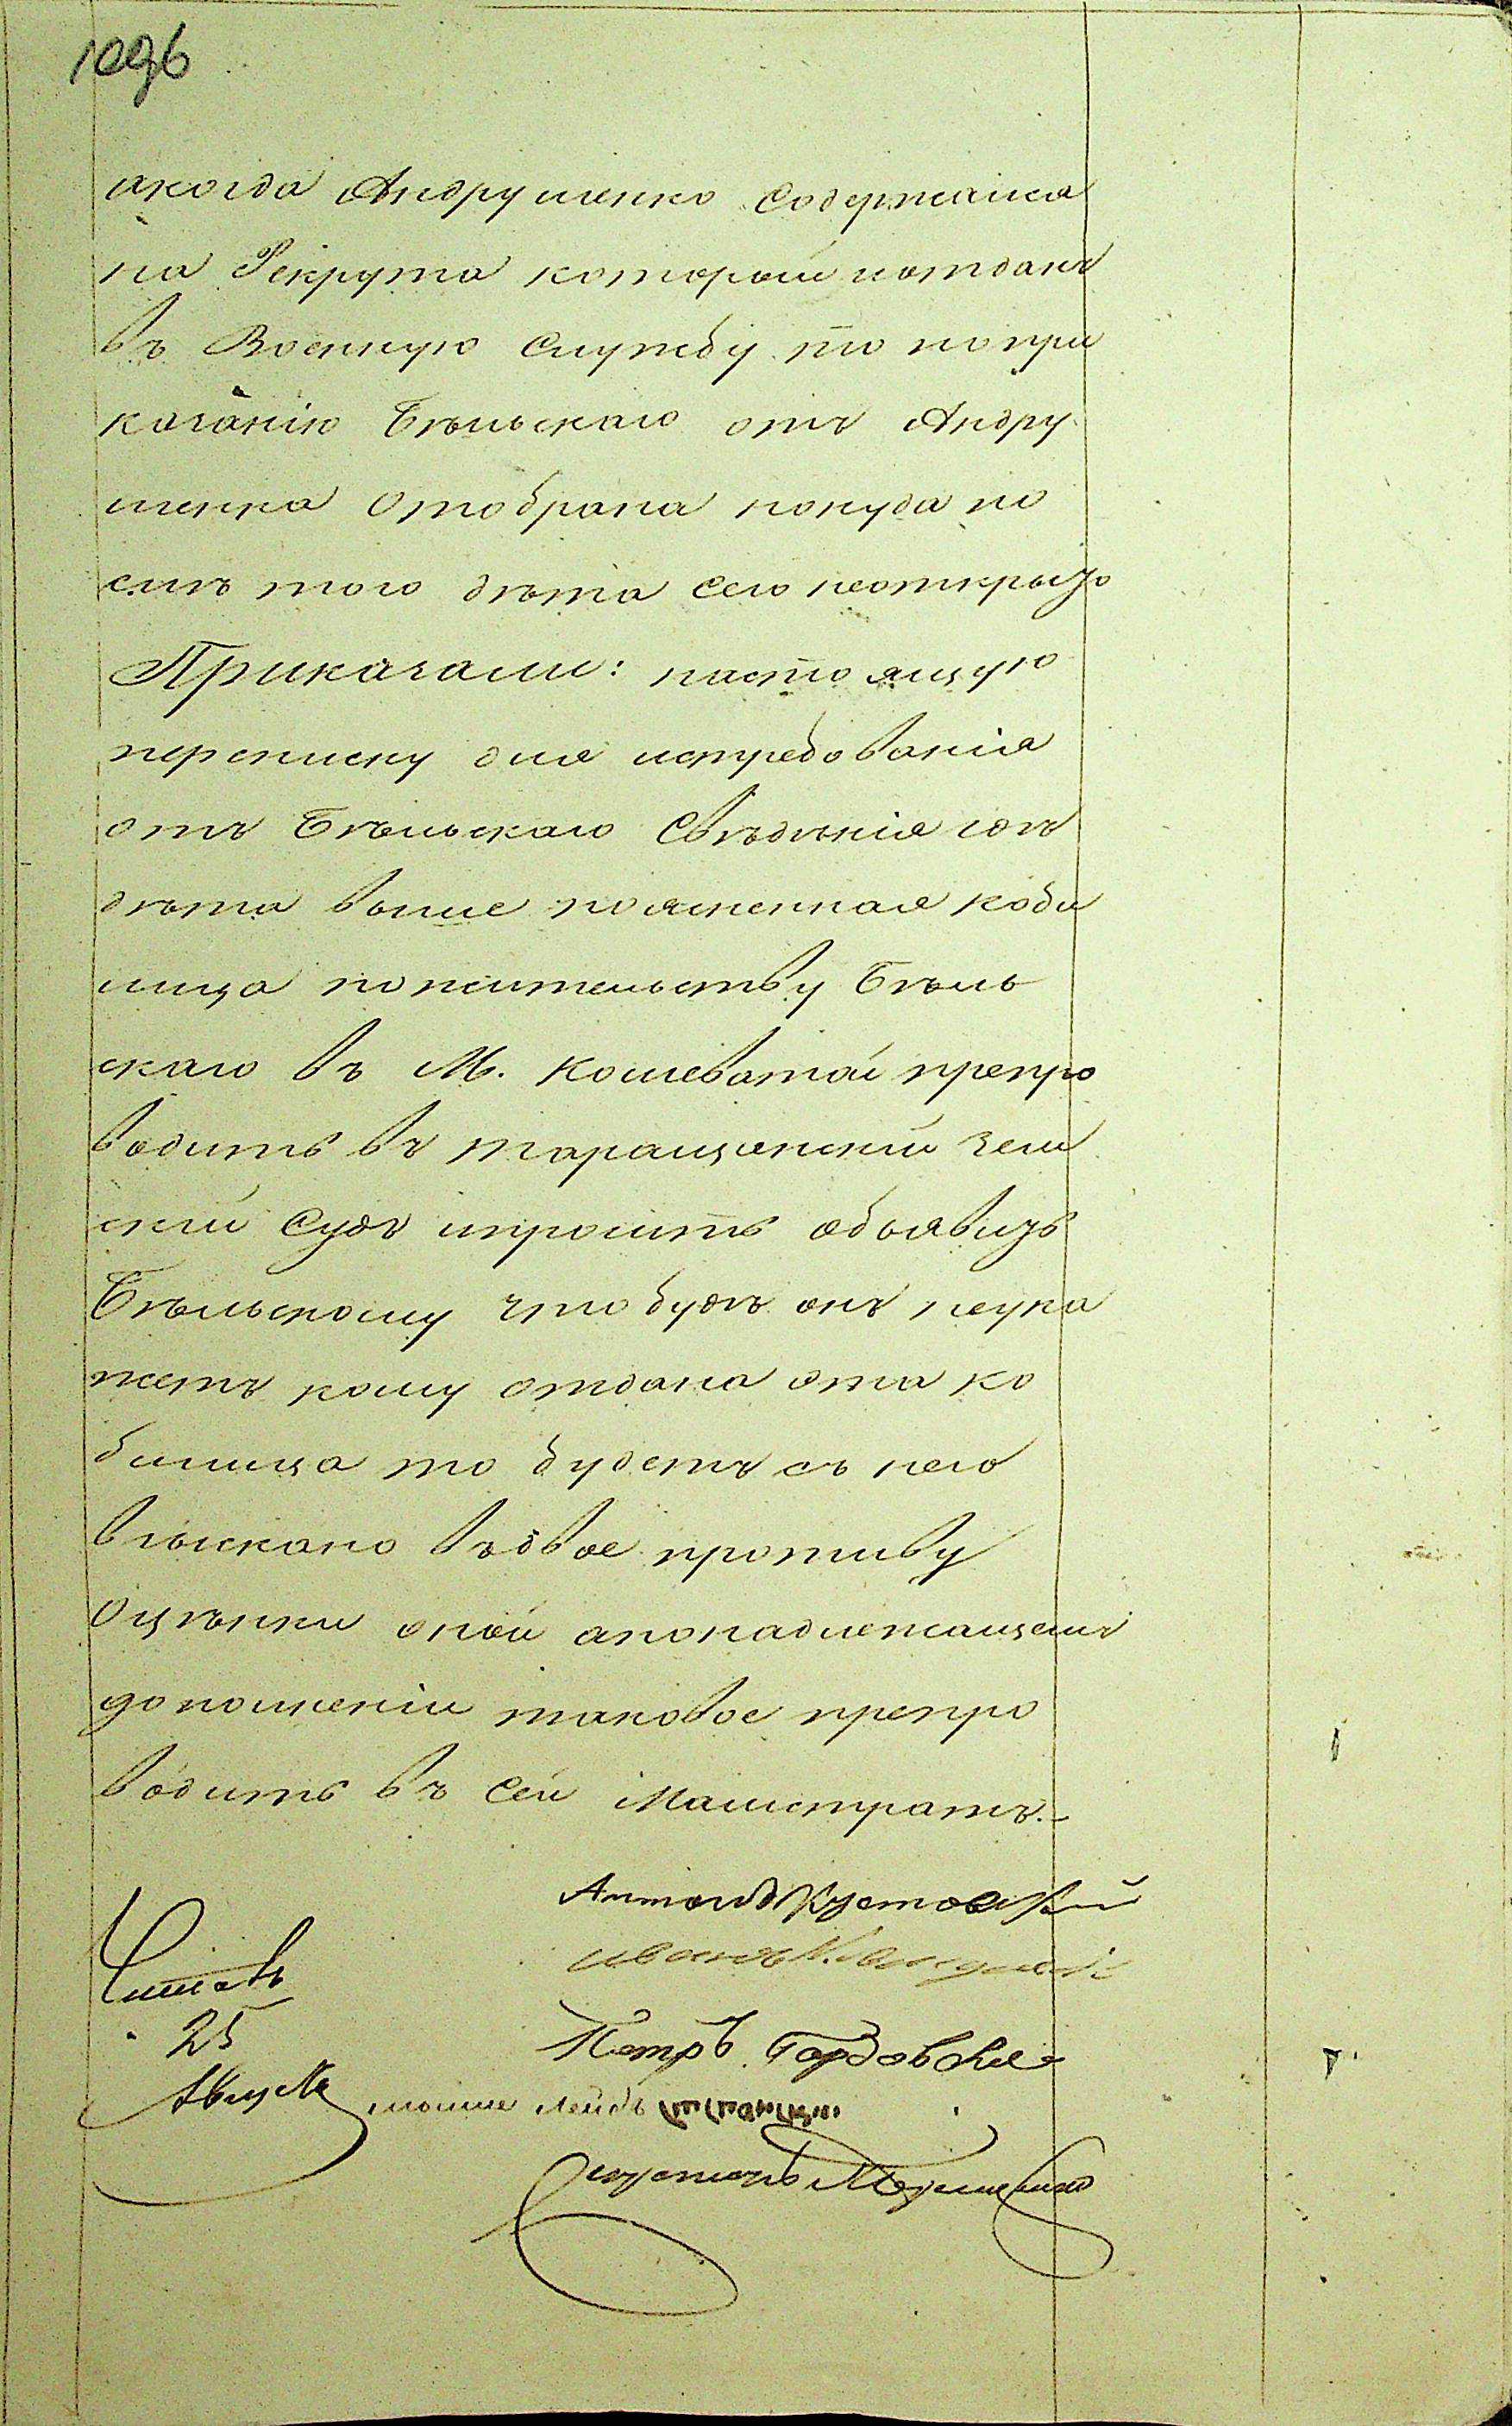 1096
акогда Андрушенко Содержался
на Рекрута который иотданъ
въ Военную Службу то попри
казанію Бѣльскаго отъ Андру
шенка Отобрана нокуда по
елику того дѣта Сего неоткрыто
Приказали: настоящую
переписку для истребованія
отъ Бѣльскаго Свѣдѣнія гдѣ
дѣта выше поясненная кобы
лица пожительству Бѣль
скаго въ М. Кошеватой препро
водить въ таращанскій зем
скій Судъ ипросить объявить
Бѣльскому что будѣ онъ неука
жетъ кому отдана эта ко
былица то будетъ съ него
взыскано въдвое противу
Оцѣнки оной апонадлежащемъ
дополненіи таковое препро
водить въ Сей Магистратъ.
Антонъ Кустовскій
иванъ
Петръ Гордовскій
Читалъ
25
Августа
мошко лейбъ